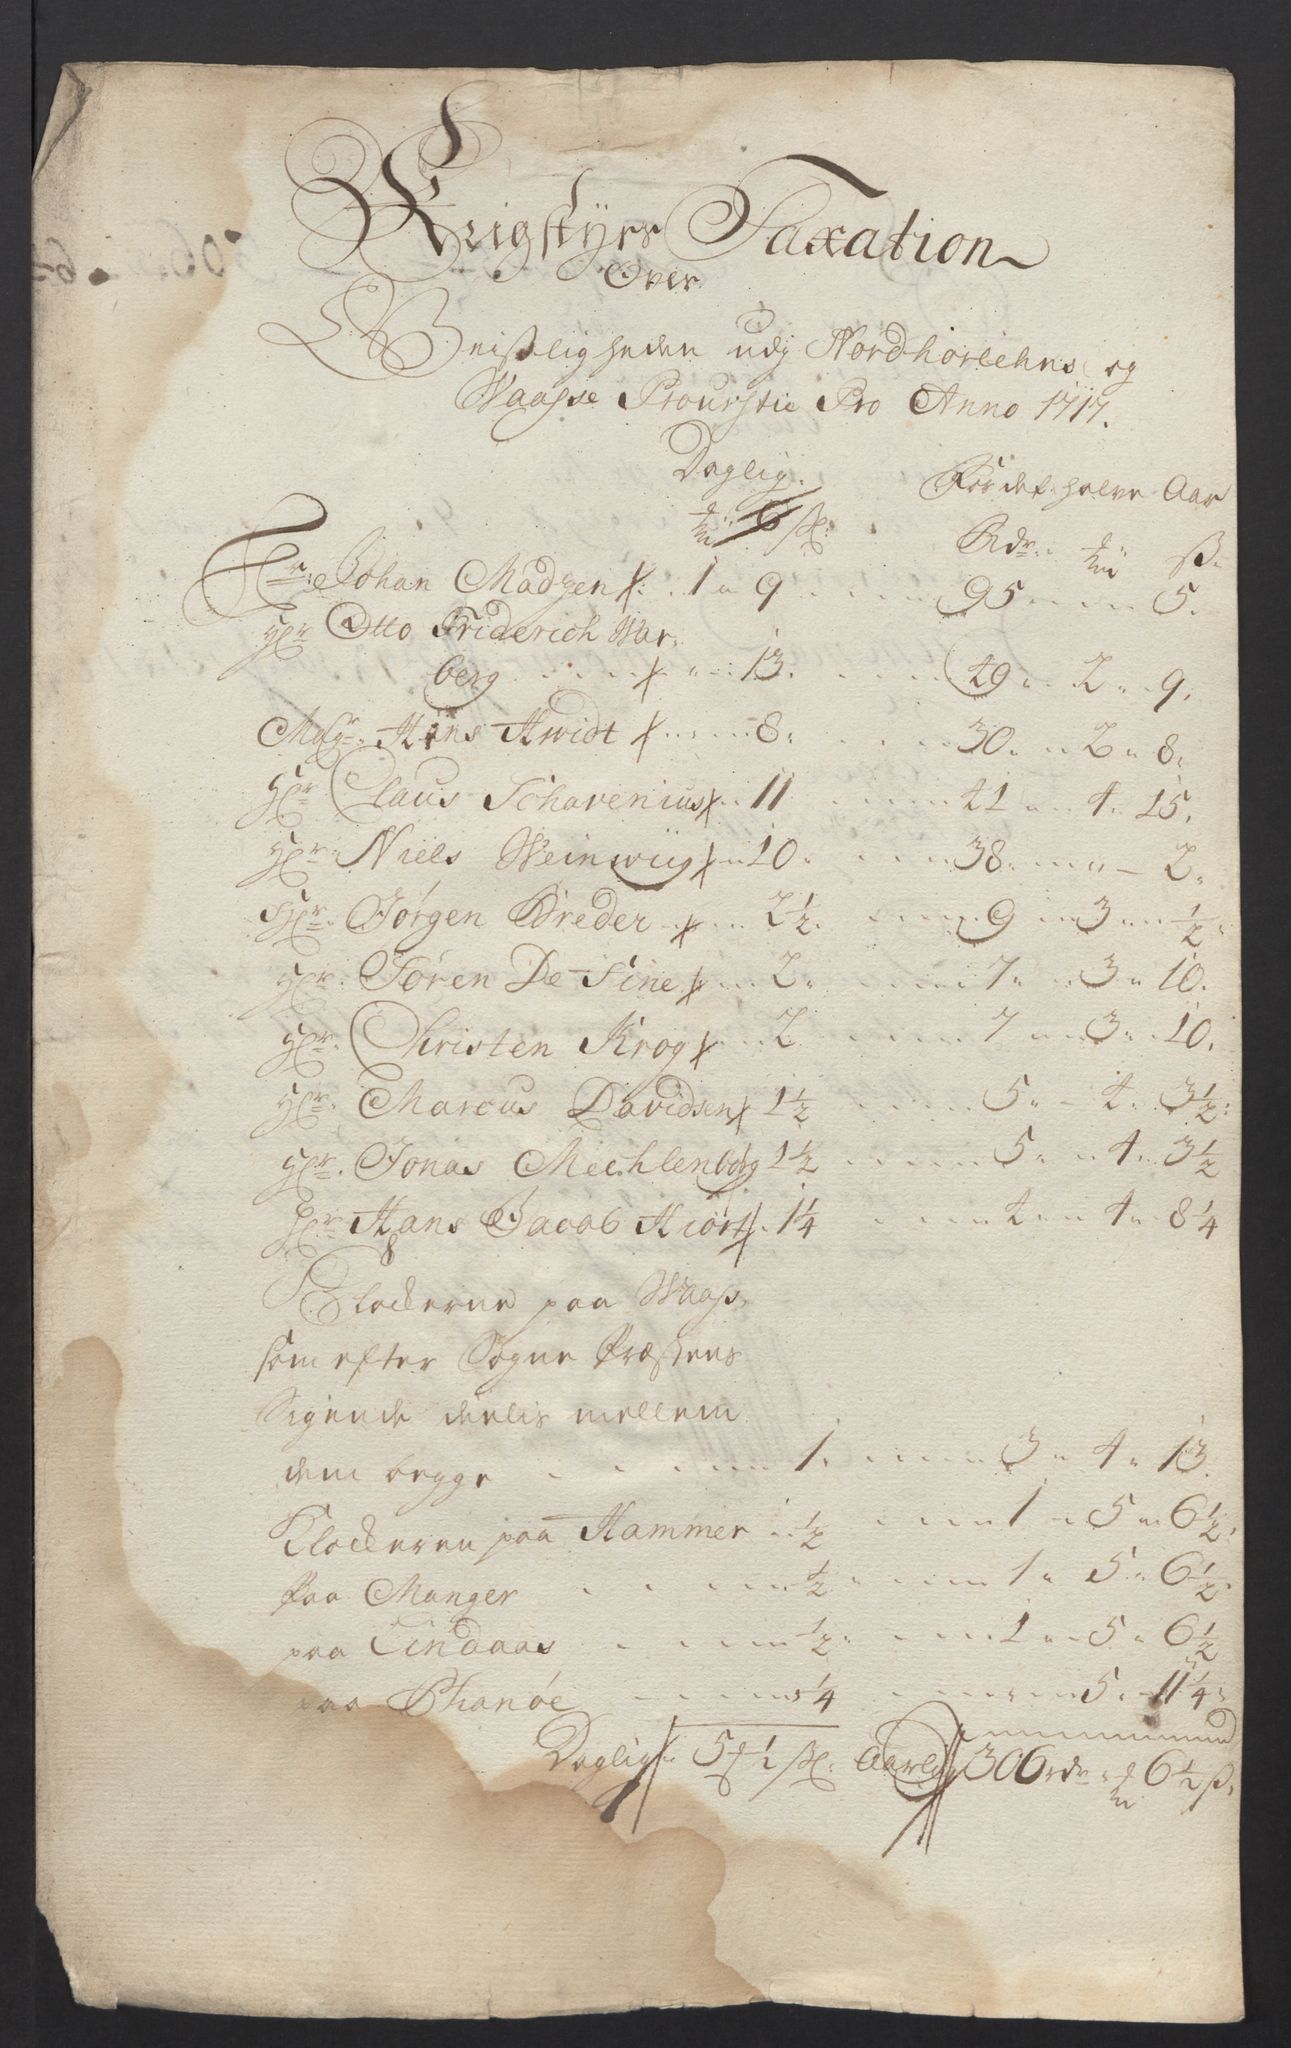 Krigstyrs Taxation
Over
Geistligheden udj Nordhorlehns og
Waasse Proustie Pro Anno 1717.
Daglig. For det halve Aar
ß: Rdr. ß
Hr: Johan Madzen 1 9 95 5.
Hr Otto Friderich War
berg 13. 49 2 9.
Magr. Hans Hwidt 8 30 2 8
Hr Claus Schavenius 11 41 4 15.
Hr: Niels Weinwiig 10 38 — 2
Hr Jørgen Breder 2½ 9 3 ½
Hr. Søren De Fine 2 7 3 10.
Hr. Christen Krog 2 7 3 10.
Hr. Marcus Davidsen 1½ 5 4 3½
Hr. Jonas Mechlenborg 1½ 5 4 3½
Hr Hans Jacob Hiort 1¼ 4 4 8¼
Klockerne paa Waass
som efter Sogne Præstens
Sigende deelis mellem
dem begge 1 3 4 13
Klockeren paa Hammer ½ 1 5 6½
Paa Manger ½ 1 5 6½
paa Lindaas ½ 1 5 6½
paa Phanøe ¼ 5 11¼
Daglig 5 ½ ß: Aarlig 306 rdr 6½ ß